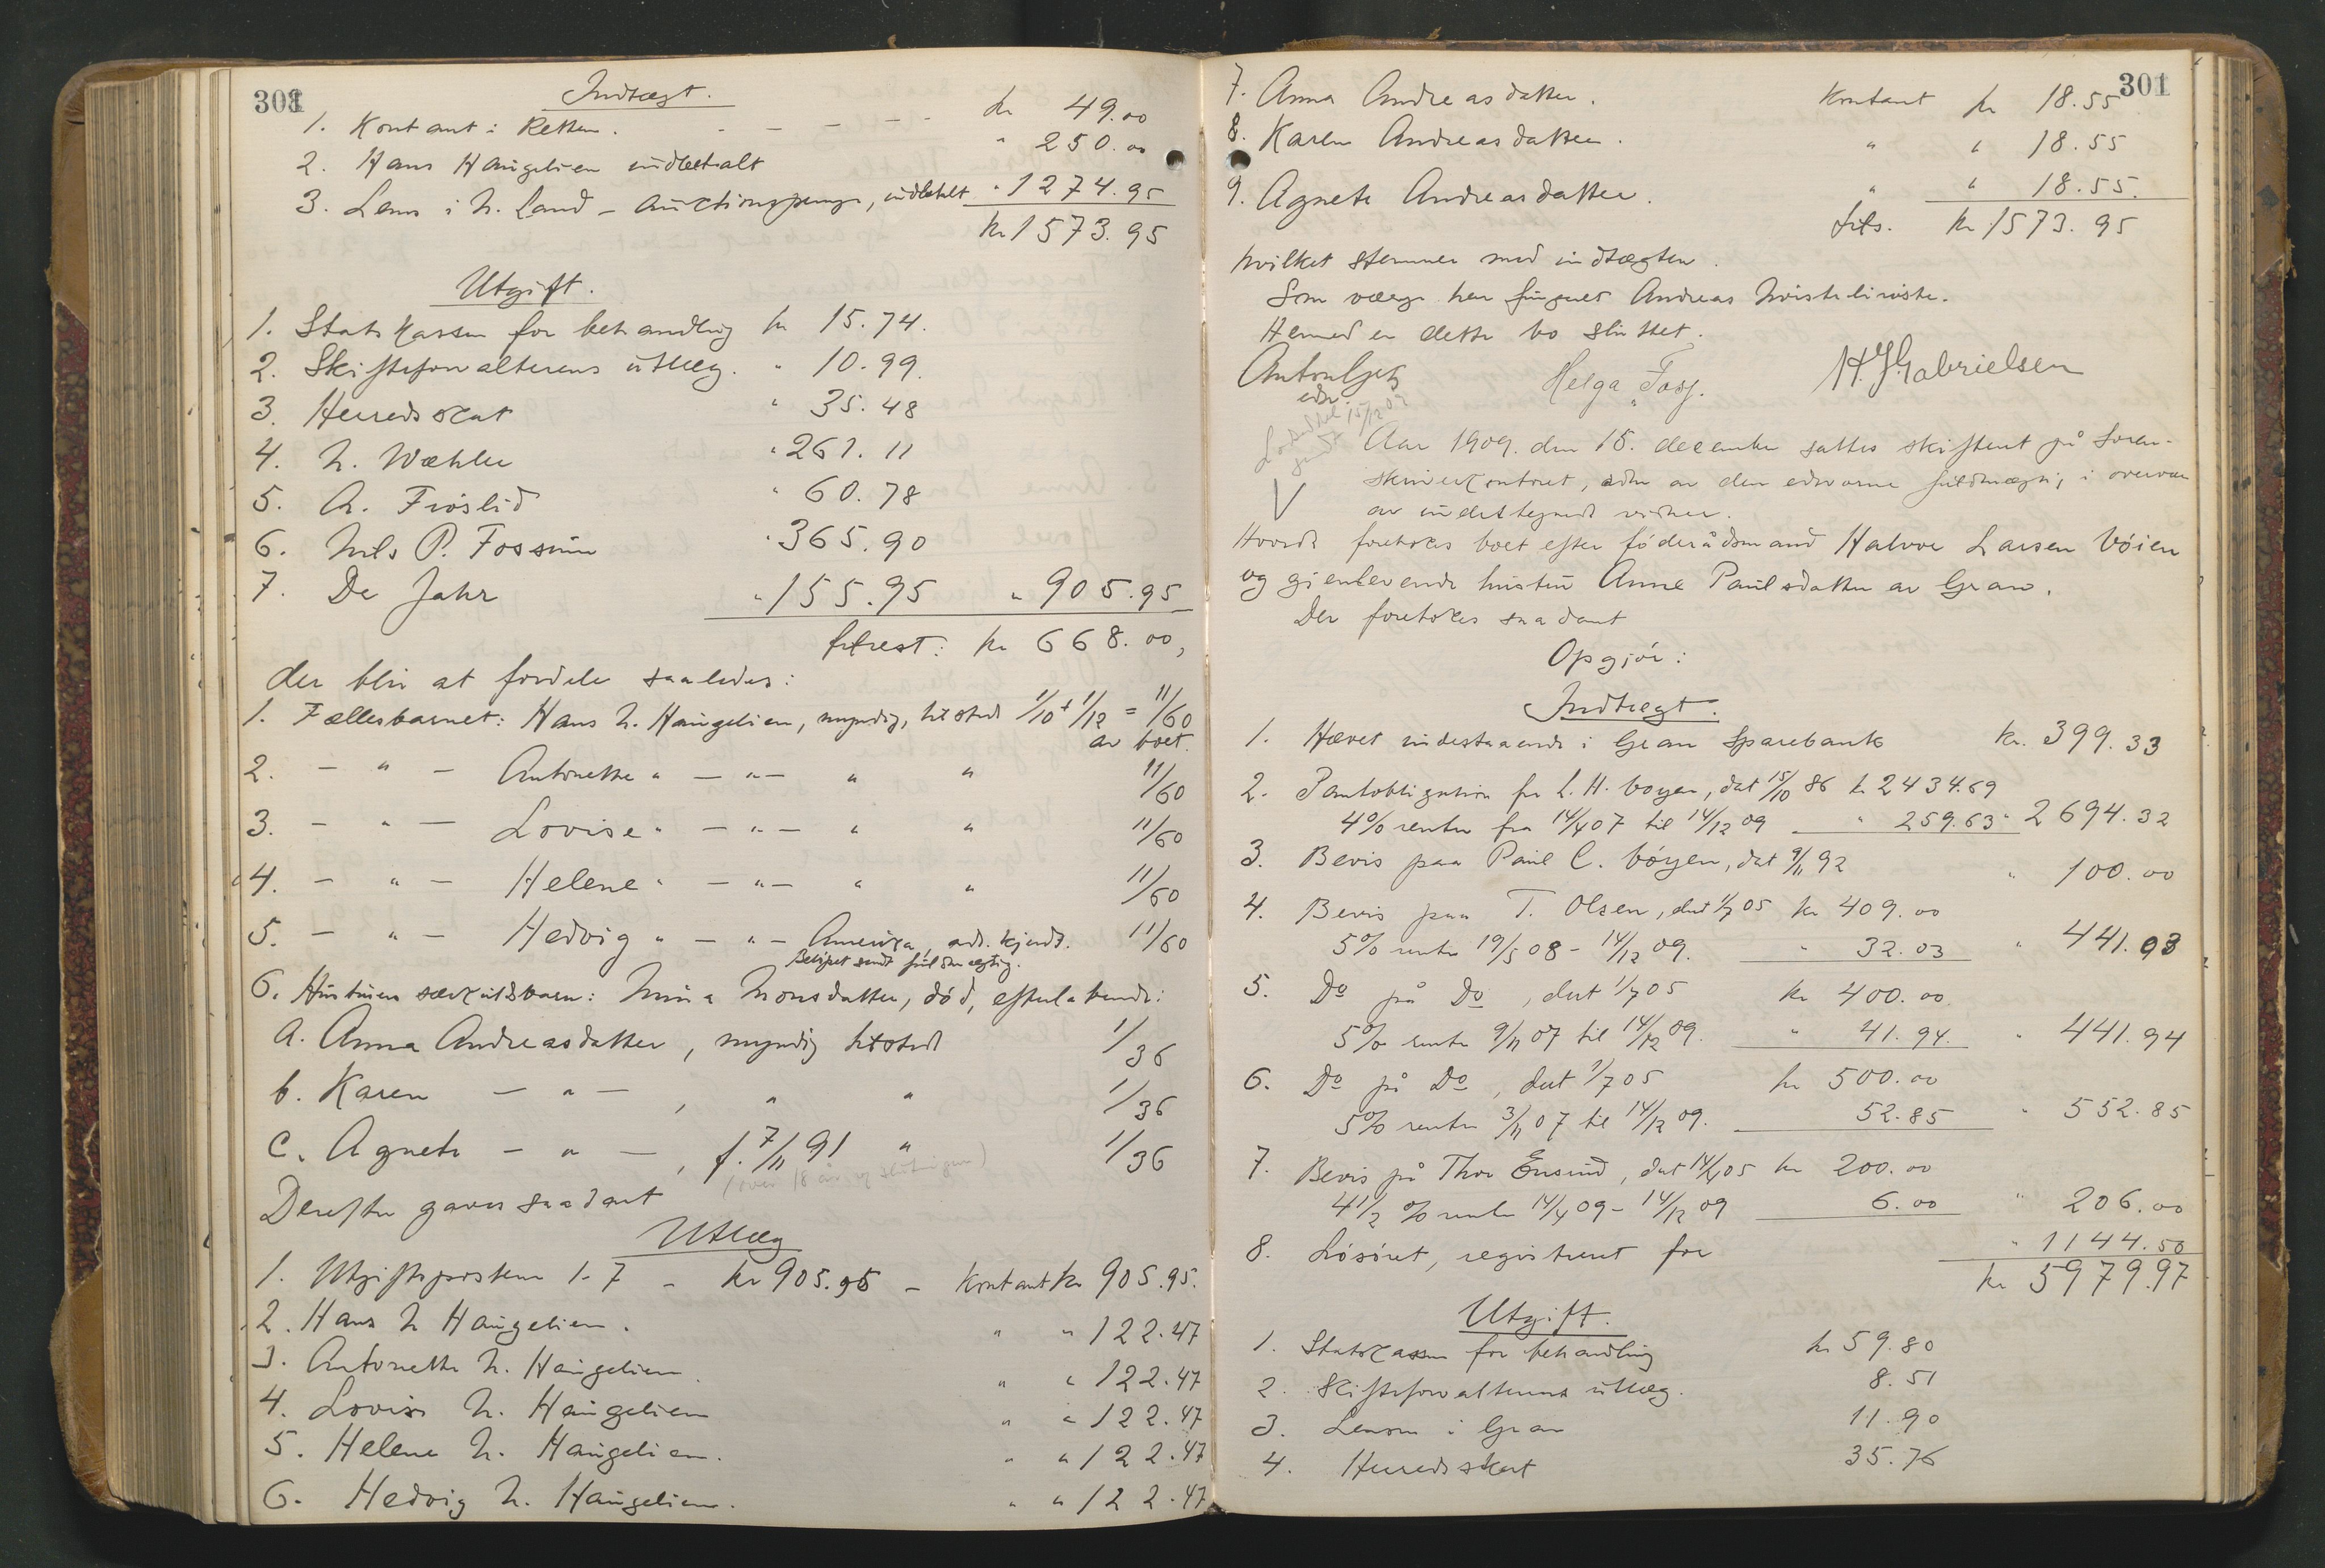 301
Indtægt.
1. Kontant i Retten. - - - - - kr 49.00
2. Hans Haugelien indbetalt " 250.00
3. Lens. i N. Land - auctionspenge, indbetalt " 1274.95
kr 1573.95
Utgift.
1. Statskassen for behandling kr 15.74.
2. Skifteforvalterens utlæg. " 10.99.
3. Herredsskat " 35.48
4. N. Wæhler " 261.11
5. A. Fröslid " 60.78
6. Nils P. Fossum " 365.90
7. De Jahr " 155.95 " 905.95
rest: kr 668.00,
der blir at fordele saaledes:
1. Fællesbarnet: Hans N. Haugelien, myndig, tilsted 1/10 + 1/12 = 11/60
av boet.
2. - " - Antonette " - " - " " 11/60
3. - " - Lovise " - " - " " 11/60
4. - " - Helene " - " - " " 11/60
5. - " - Hedvig " - " - Amerika, adr. kjendt. 11/60
Beløpet sendt fuldmægtig.
6. Hustruens særkuldsbarn: Nonsdatter, död, efterladende:
a. Anna Andreasdatter, myndig tilsted 1/36
b. Karen - " - , " " 1/36
c. Agnete - " - , f. 7/11 91 " 1/36
(over 18 år og
Derefter gaves saadant
Utlæg
1. Utgiftsposterne 1-7 - kr 905.95 - kontant kr 905.95.
2. Hans N Haugelien. " " 122.47
3. Antonette N. Haugelien. " " 122.47
4. Lovise N. Haugelien " " 122.47
5. Helene N. Haugelien. " " 122.47
6. Hedvig N. Haugelien. " " 122.47
301
7. Anna Andreasdatter. Kontant kr 18.55
8. Karen Andreasdatter. " " 18.55
9. Agnete Andreasdatter. " " 18.55.
Tils. kr 1573.95
hvilket stemmer med indtægten.
Som værge har fungert Andreas
Hermed er dette bo sluttet.
Helga Fosj. H. J. Gabrielsen
edsv.
15/12 09
Aar 1909. den 15. december sattes skifteret på Soren-
skriverkontoret, adm av den edsvorne fuldmægtig i overvær
av undertegnede vidner.
Hvorda foretokes boet efter föderådsmand Halvor Larsen Vöien
og gjenlevende hustru Anne Paulsdatter av Gran.
Der foretokes saadant
Opgjör:
Indtægt.
1. Hævet indestaaende i Gran Sparebank kr. 399.33
2. Pantobligation fra L. H. Vøyen, dat 15/10 86 kr 2434.69
4% renter fra 14/4 07 til 14/12 09 " 259.63 " 2694.32
3. Bevis paa Paul C. Vöyen, dat 9/11 92 " 100.00
4. Bevis paa T. Olsen, dat 1/7 05 kr 409.00
5% rente 19/5 08 - 14/12 09. " 32.03 " 441.03
5. Do på Do, dat 1/7 05 kr 400.00
5% rente 9/11 07 til 14/12 09. " 41.94. " 441.94
6. Do på Do, dat 1/7 05 kr 500.00
5% rente 3/11 07 til 14/12 09. 52.85 " 552.85
7. Bevis på Thor Ensrud, dat 14/4 05 kr 200.00
4 1/2 % rente 14/4 09 - 14/12 09 6.00 " 206.00
8. Lösöret, registreret for " 1144.50
kr 5979.97
Utgift.
1. Statskassen for behandling kr 59.80
2. Skifteforvalterens utlæg. 8.51
3. Lensm i Gran 11.90
4. Herredsskat 35.76